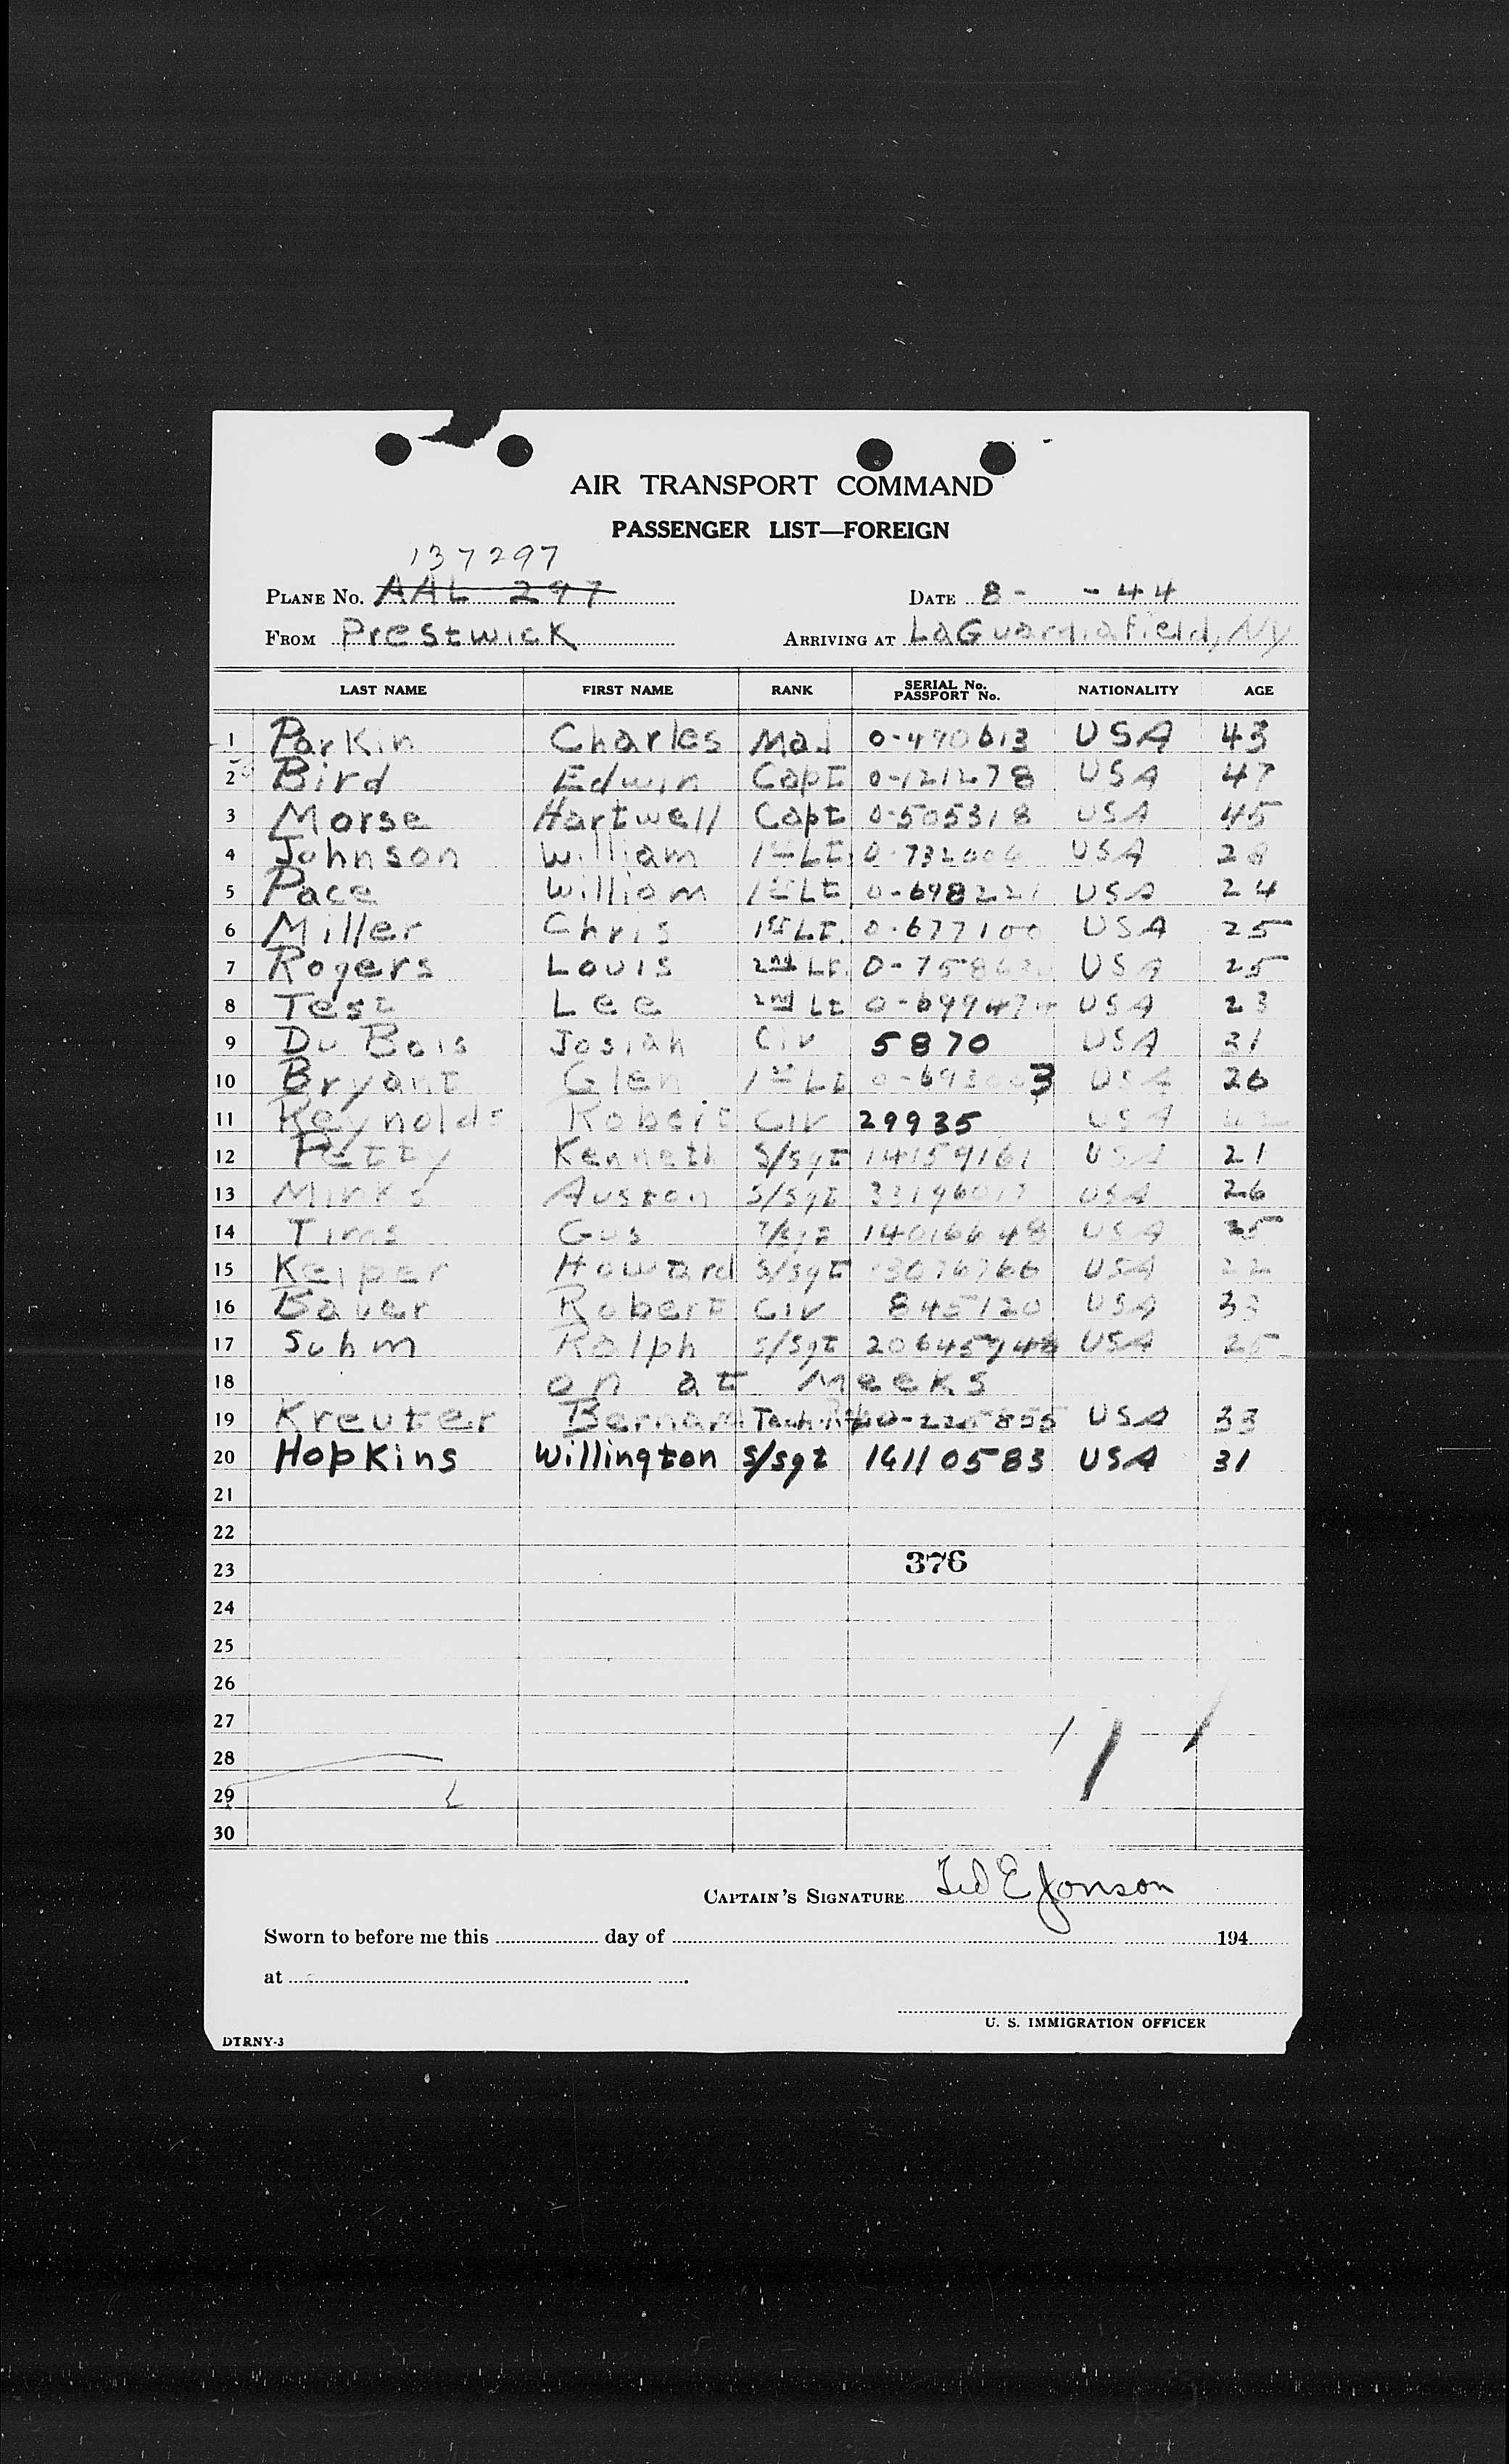 AIR TRANSPORT COMMAND
PASSENGER LIST—FOREIGN
137297
PLANE No. AAL 297 DATE 8- -44
FROM Prestwick ARRIVING AT LaGuardiafield, Ny
LAST NAME FIRST NAME RANK SERIAL No. PASSPORT No. NATIONALITY AGE
1 Parkin Charles Maj 0-470613 USA 43
2 Bird Edwin Capt 0-121278 USA 47
3 Morse Hartwell Capt 0-505318 USA 45
4 Johnson William 1st Lt 0-732006 USA 28
5 Pace William 1st Lt 0-698221 USA 24
6 Miller Chris 1st Lt. 0-677100 USA 25
7 Rogers Louis 2nd Lt. USA 25
8 Lee 2nd Lt USA 23
9 Du Bois Josiah Civ 5870 USA 31
10 Bryant Glen 1st Lt USA 26
11 Reynolds Robert Civ 29935 USA
12 Petty Kenneth S/sgt 14159161 USA 21
13 Minks Auston S/sgt USA 26
14 Tims Gus T/sgt 14016648 USA 25
15 Keiper Howard S/sgt USA 22
16 Bauer Robert Civ 845120 USA 33
17 Suhm Ralph S/sgt USA 25
18 on at Meeks
19 Kreuter Bernard USA 33
20 Hopkins Willington S/sgt 14110583 USA 31
21
22
23 376
24
25
26
27
28
29
30
CAPTAIN'S SIGNATURE Ted E Jonson
Sworn to before me this day of 194
at
U. S. IMMIGRATION OFFICER
DTRNY-3